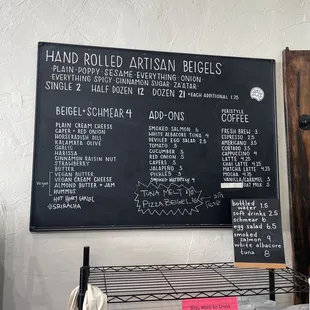 HAND ROLLED ARTISAN BEIGELS
·PLAIN·POPPY·SESAME·EVERYTHING·ONION·
EVERYTHING SPICY·CINNAMON SUGAR·ZA'ATAR·
SINGLE 2 HALF DOZEN 12 DOZEN 21 +EACH ADDITIONAL 1.75
BEIGEL+SCHMEAR 4
PLAIN CREAM CHEESE
CAPER + RED ONION
HORSERADISH DILL
KALAMATA OLIVE
GARLIC
HARISSA
CINNAMON RAISIN NUT
STRAWBERRY
BUTTER
VEGAN BUTTER
VEGAN CREAM CHEESE
ALMOND BUTTER + JAM
HUMMUS
HOT HONEY GARLIC
SRIRACHA
ADD-ONS
SMOKED SALMON 6
WHITE ALBACORE TUNA 4
DEVILED EGG SALAD 2.5
TOMATO .5
CUCUMBER .5
RED ONION .5
CAPERS .5
JALAPEÑO .5
PICKLES .5
TUNA MELT
PIZZA BEIGEL
PERISTYLE
COFFEE
FRESH BREW 3
ESPRESSO 2.5
AMERICANO 3.5
CORTADO 3.5
CAPPUCCINO 4
LATTE 4.25
CHAI LATTE 4.25
MATCHA LATTE 4.5
MOCHA 4.5
VANILLA/CARAMEL .5
OAT MILK .5
bottled water 2
soft drinks 2.5
schmear 6
egg salad 6.5
smoked
salmon 9
white albacore
tuna 8